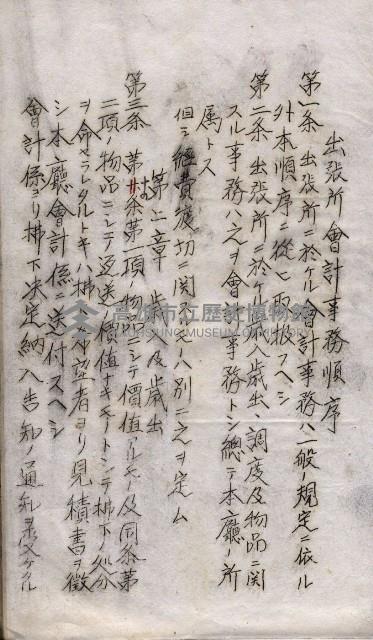 出張所會計事務順序
第一条 出張所ニ於ケル會計事務ハ一般ノ規定ニ依ル
外本順序ニ從ヒ取扱フヘシ
第二条 出張所ニ於ケル歳入歳出、調度及物品ニ関
スル事務ハ之ヲ會計事務トシ總テ本廳ノ所
属トス
但シ経費度切ニ関スル ハ別ニ之ヲ定ム
第二章 歳入及歳出
第三条 第廿条第一項ノ物品ニシテ價値アルモノ及同条第
二項ノ物品ニシテ返送ノ價値ナキモノトシテ拂下ノ処分
ヲ命セラレタルトキハ拂下希望者ヨリ見積書ヲ徴
シ本廳會計係ニ送付スヘシ
會計係ヨリ拂下決定納入告知ノ通知ヲ受ケタル
高雄市立歷史博物館
KAOHSIUNG MUSEUM OF HISTORY